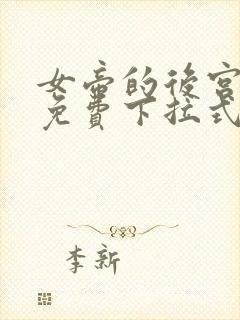 女帝的後宮
免費下拉式
李新